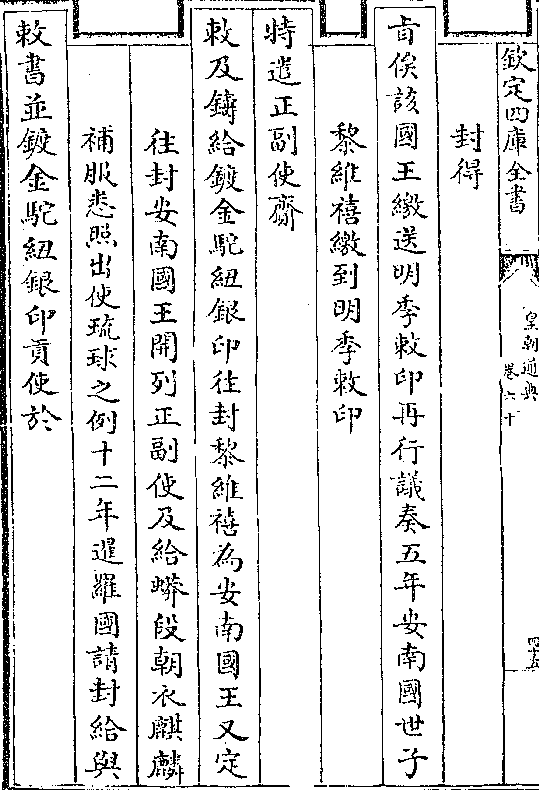 欽定四庫全書
皇朝通典
卷六十
封得
旨俟該國王繳送明季敕印再行議奏五年安南國世子
黎維禧繳到明季敕印
特遣正副使齎
敕及鑄給鍍金駝紐銀印往封黎維禧為安南國王又定
往封安南國王開列正副使及給蟒段朝衣麒麟
補服悉照出使琉球之例十二年暹羅國請封給與
敕書並鍍金駝紐銀印貢使於